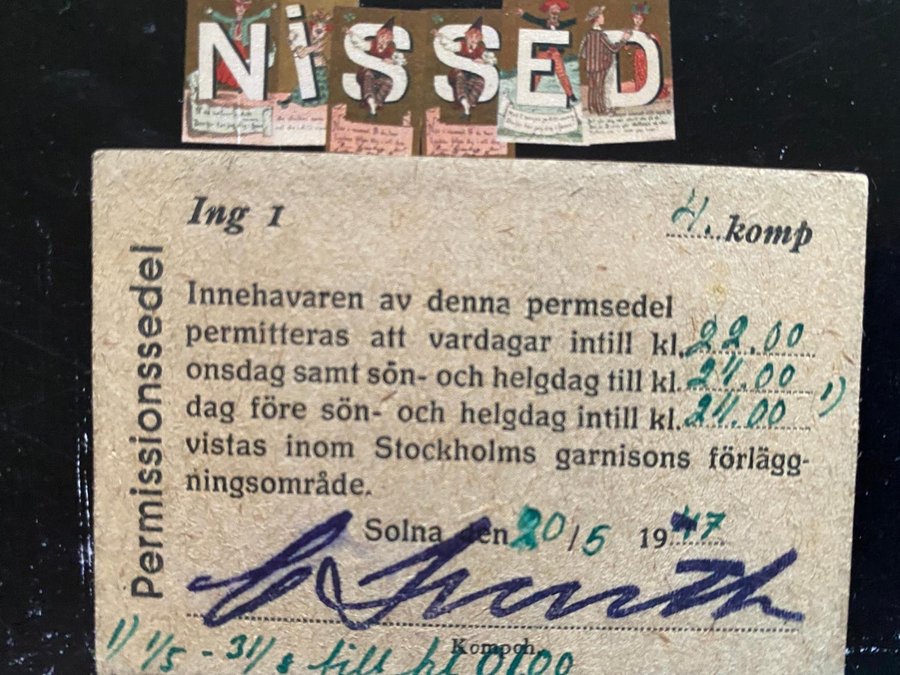 NiSSED
Ing 1
4. komp
Permissionssedel
Innehavaren av denna permsedel
permitteras att vardagar intill kl. 22.00
onsdag samt sön- och helgdag till kl. 24.00 1)
dag före sön- och helgdag intill kl. 24.00
vistas inom Stockholms garnisons förlägg-
ningsområde.
Solna den 20/5 1947
Kompch.
1) 1/5 - 31/8 till kl 01.00